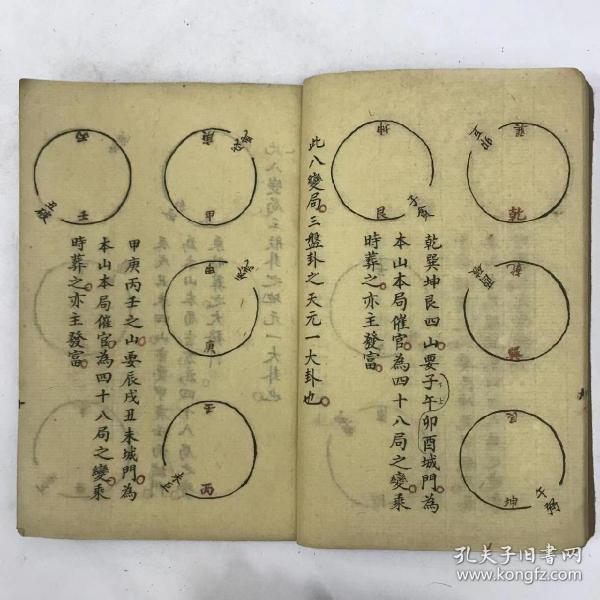 巽
乾
乾
巽
艮
坤
坤
艮
乾巽坤艮四山要子午卯酉城門為
本山本局催官為四十八局之變乘
時葬之亦主發富
此八變局三盤卦之天元一大卦也
庚
甲
甲
庚
壬
丙
丙
壬
甲庚丙壬之山要辰戌丑未城門為
本山本局催官為四十八局之變乘
時葬之亦主發富
孔夫子旧书网
www.kongfz.com